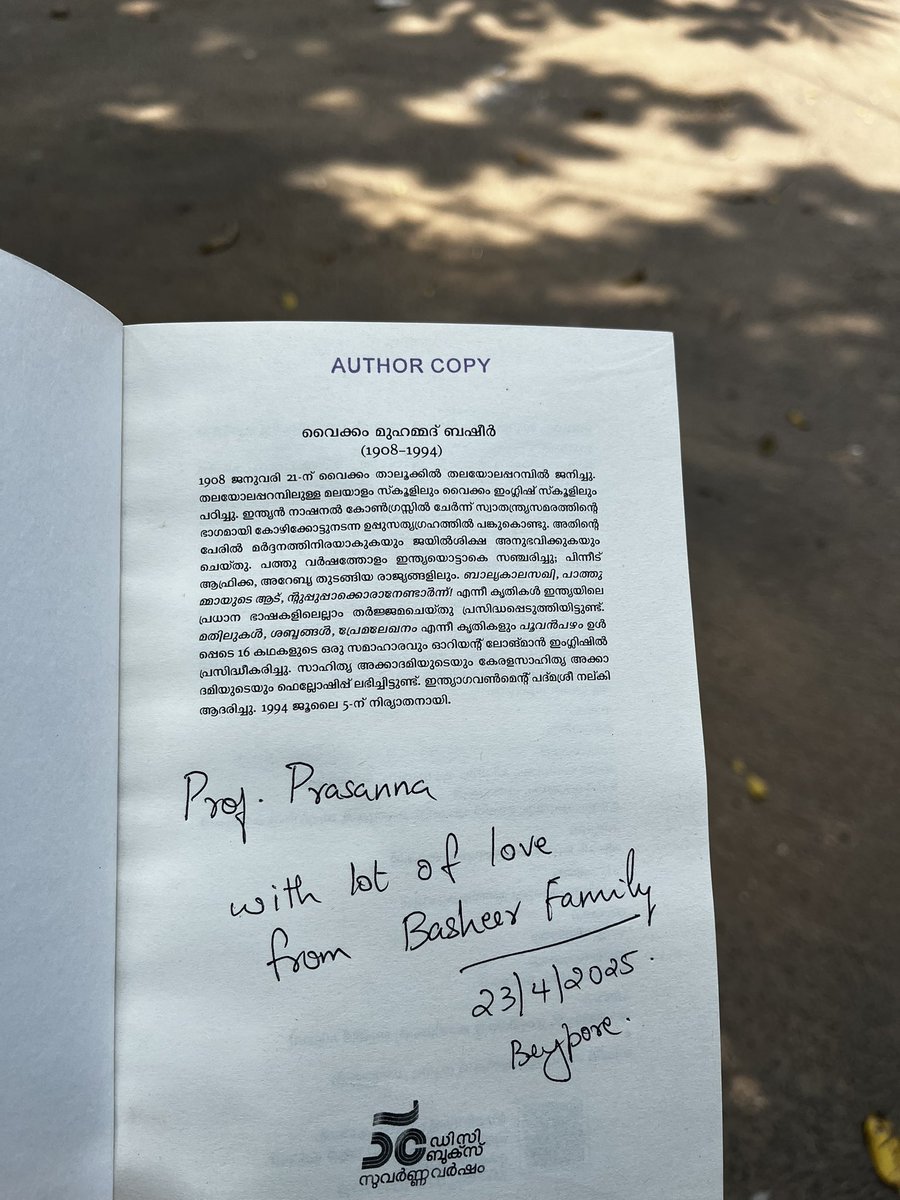 AUTHOR COPY
വൈക്കം മുഹമ്മദ് ബഷീർ
(1908–1994)
1908 ജനുവരി 21-ന് വൈക്കം താലൂക്കിൽ തലയോലപ്പറമ്പിൽ ജനിച്ചു.
തലയോലപ്പറമ്പിലുള്ള മലയാളം സ്കൂളിലും വൈക്കം ഇംഗ്ലിഷ് സ്കൂളിലും
പഠിച്ചു. ഇന്ത്യൻ നാഷനൽ കോൺഗ്രസ്സിൽ ചേർന്ന് സ്വാതന്ത്ര്യസമരത്തിന്റെ
ഭാഗമായി കോഴിക്കോട്ടുനടന്ന ഉപ്പുസത്യഗ്രഹത്തിൽ പങ്കുകൊണ്ടു. അതിന്റെ
പേരിൽ മർദ്ദനത്തിനിരയാകുകയും ജയിൽശിക്ഷ അനുഭവിക്കുകയും
ചെയ്തു. പത്തു വർഷത്തോളം ഇന്ത്യയൊട്ടാകെ സഞ്ചരിച്ചു; പിന്നീട്
ആഫ്രിക്ക, അറേബ്യ തുടങ്ങിയ രാജ്യങ്ങളിലും. ബാല്യകാലസഖി, പാത്തു
മ്മായുടെ ആട്, ന്റുപ്പുപ്പാക്കൊരാനേണ്ടാർന്ന്! എന്നീ കൃതികൾ ഇന്ത്യയിലെ
പ്രധാന ഭാഷകളിലെല്ലാം തർജ്ജമചെയ്തു പ്രസിദ്ധപ്പെടുത്തിയിട്ടുണ്ട്.
മതിലുകൾ, ശബ്ദങ്ങൾ, പ്രേമലേഖനം എന്നീ കൃതികളും പൂവൻപഴം ഉൾ
പ്പെടെ 16 കഥകളുടെ ഒരു സമാഹാരവും ഓറിയന്റ് ലോങ്മാൻ ഇംഗ്ലിഷിൽ
പ്രസിദ്ധീകരിച്ചു. സാഹിത്യ അക്കാദമിയുടെയും കേരളസാഹിത്യ അക്കാ
ദമിയുടെയും ഫെല്ലോഷിപ്പ് ലഭിച്ചിട്ടുണ്ട്. ഇന്ത്യാഗവൺമെന്റ് പദ്മശ്രീ നല്കി
ആദരിച്ചു. 1994 ജൂലൈ 5-ന് നിര്യാതനായി.
Prof. Prasanna
with lot of love
from Basheer Family
23/4/2025.
Beypore.
ഡിസി
ബുക്സ്
സുവർണ്ണവർഷം